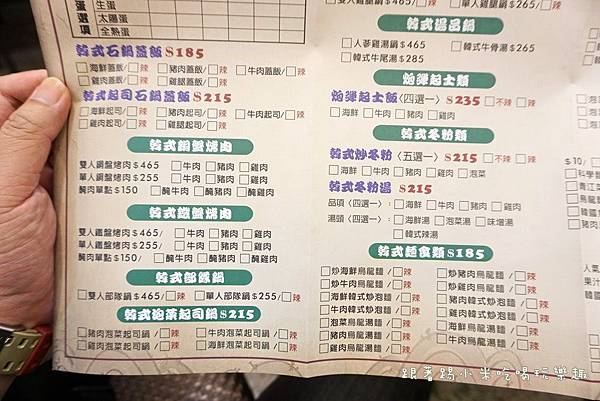 蛋選項
生蛋
太陽蛋
全熟蛋
韓式石鍋蓋飯 $185
海鮮蓋飯/辣 豬肉蓋飯/辣 牛肉蓋飯/辣
雞肉蓋飯/辣 雞腿蓋飯/辣
韓式起司石鍋蓋飯 $215
海鮮起司/辣 豬肉起司/辣 牛肉起司/辣
雞肉起司/辣 雞腿起司/辣
韓式銅盤烤肉
雙人銅盤烤肉$465 牛肉 豬肉 雞肉
單人銅盤烤肉$255 牛肉 豬肉 雞肉
醃肉單點$150 醃牛肉 醃豬肉 醃雞肉
韓式鐵盤烤肉
雙人鐵盤烤肉$465/ 牛肉 豬肉 雞肉
單人鐵盤烤肉$255/ 牛肉 豬肉 雞肉
醃肉單點$150/ 醃牛肉 醃豬肉 醃雞肉
韓式部隊鍋
雙人部隊鍋$465/辣 單人部隊鍋$255/辣
韓式泡菜起司鍋 $215
豬肉泡菜起司鍋/辣 牛肉泡菜起司鍋/辣
雞肉泡菜起司鍋/辣 海鮮泡菜起司鍋/辣
雙人雞腿鍋$465/辣 單人雞腿鍋$265/辣
韓式湯品鍋
人蔘雞湯鍋$465 韓式牛骨湯$265
韓式牛尾湯$285
炮彈起士類
炮彈起士飯〈四選一〉$235 不辣 辣
海鮮 牛肉 豬肉 雞肉
韓式冬粉類
韓式炒冬粉〈五選一〉$215 不辣 辣
海鮮 牛肉 豬肉 雞肉 泡菜
韓式冬粉湯 $215
品項〈四選一〉: 海鮮 牛肉 豬肉 雞肉
湯頭〈四選一〉: 海鮮湯 泡菜湯 味增湯
韓式辣湯
韓式麵食類$185
炒海鮮烏龍麵/辣 炒豬肉烏龍麵/辣
炒牛肉烏龍麵/辣 炒雞肉烏龍麵/辣
海鮮韓式炒泡麵/辣 豬肉韓式炒泡麵/辣
牛肉韓式炒泡麵/辣 雞肉韓式炒泡麵/辣
泡菜烏龍湯麵/辣 海鮮烏龍湯麵/辣
豬肉烏龍湯麵/辣 牛肉烏龍湯麵/辣
雞肉烏龍湯麵/辣
$10/
科學麵
青江菜
烏龍麵
韓國
豬肉
人氣
果汁
韓國
跟著踢小米吃喝玩樂趣